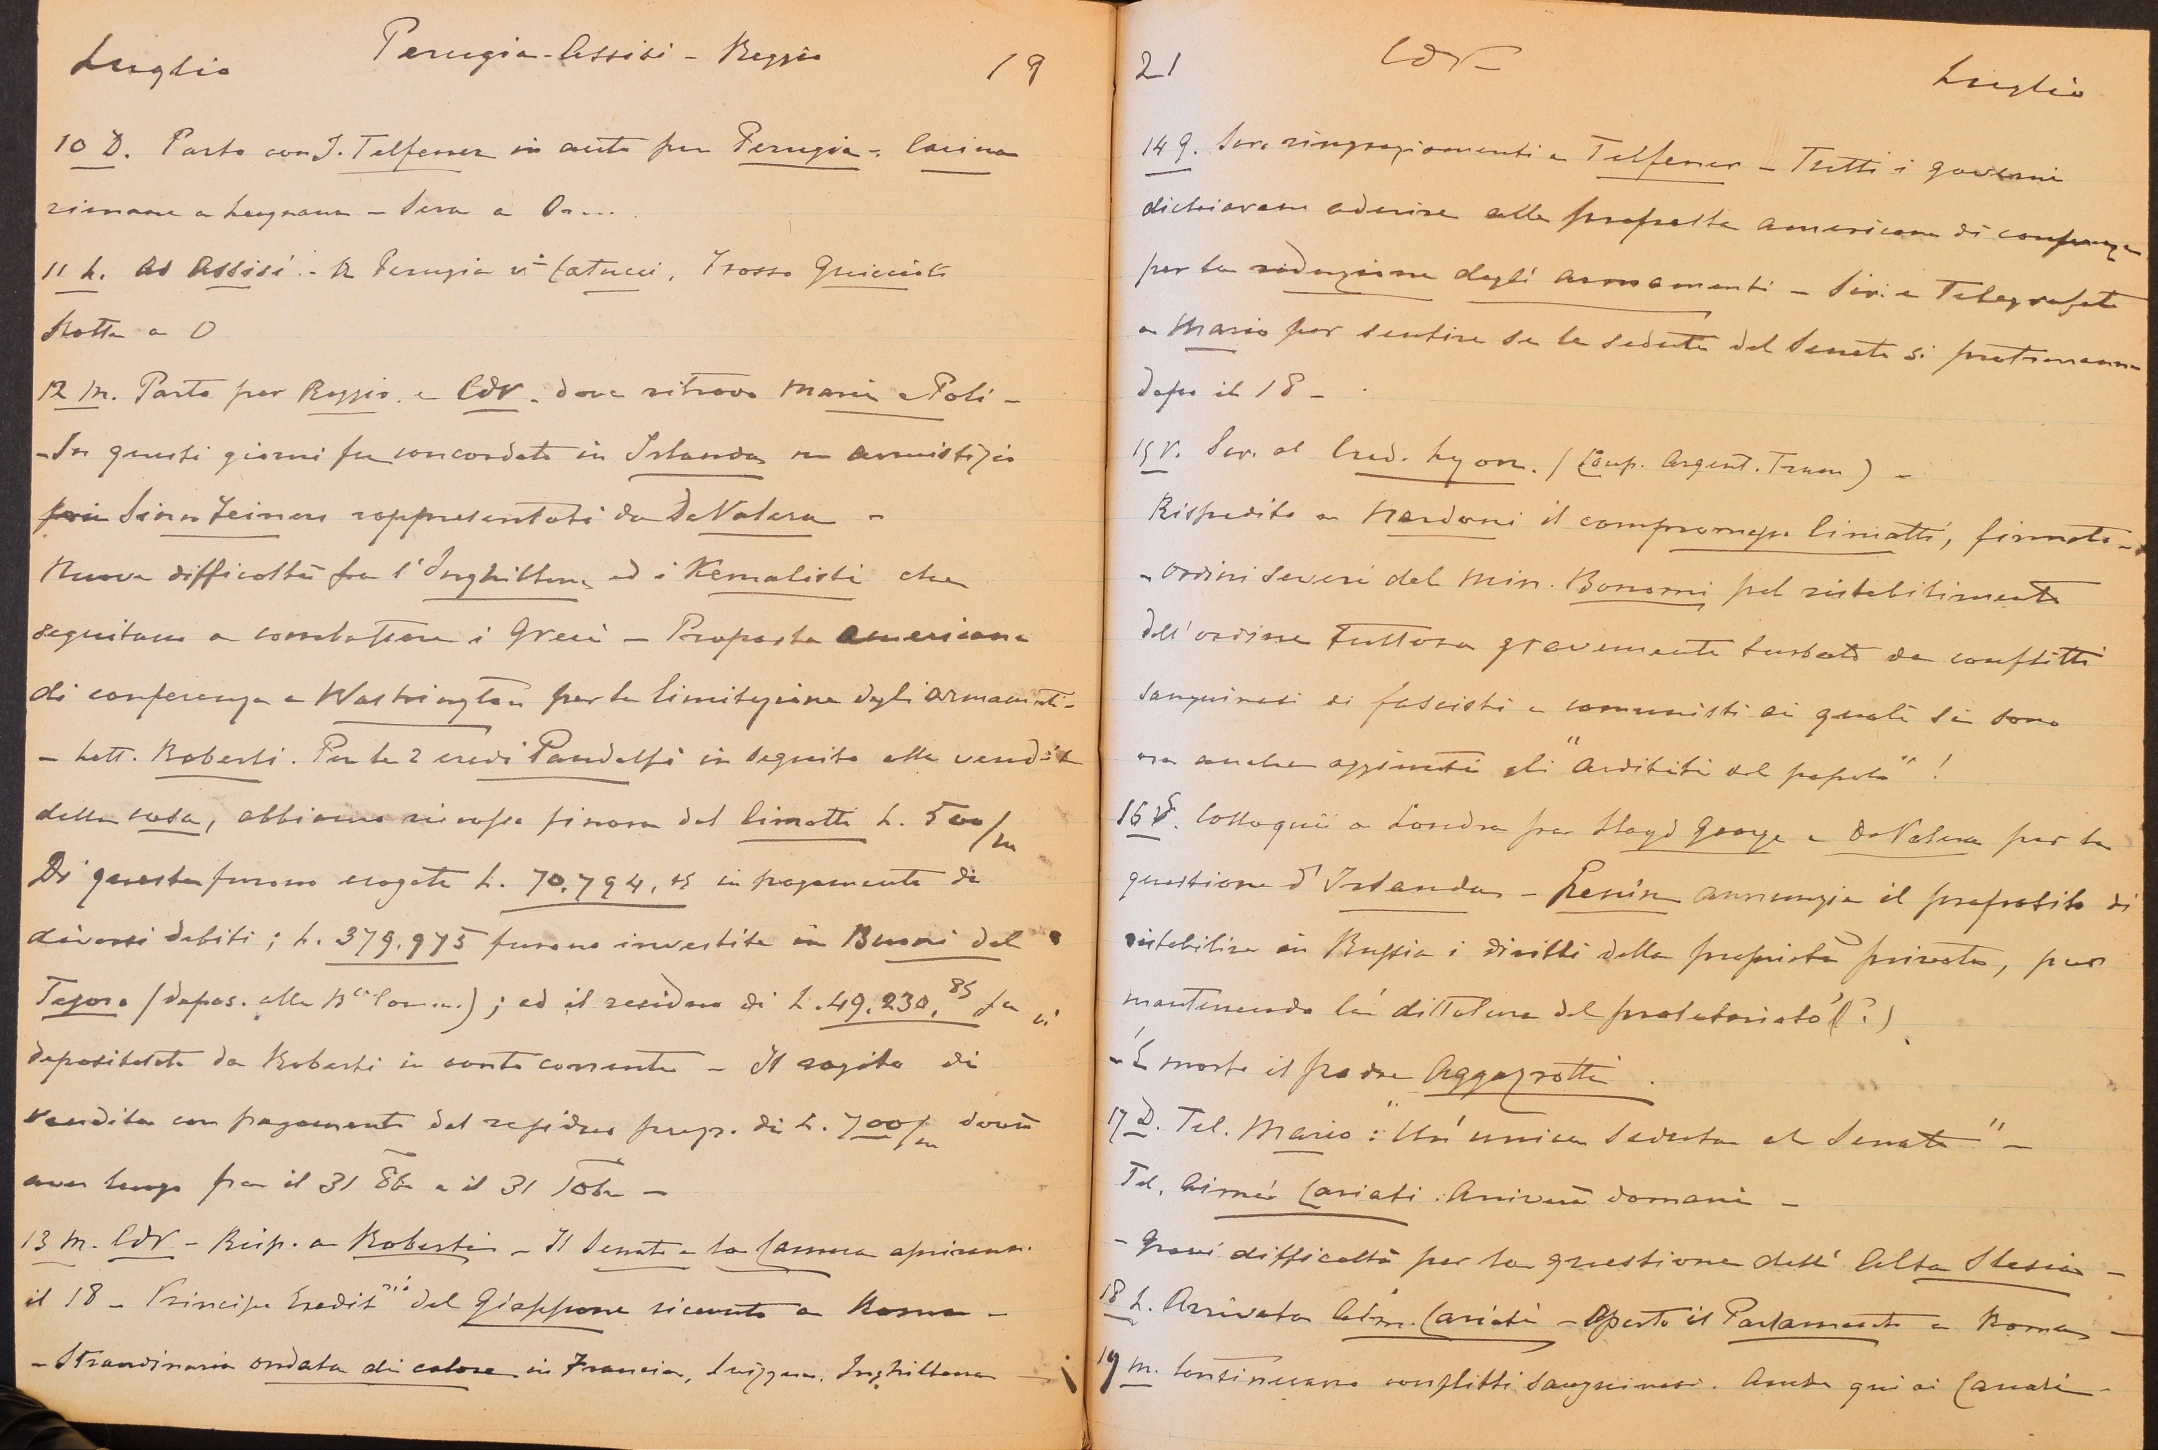 Luglio Perugia - Assisi - Reggio 19
10 D. Parto con J. Telfener in auto per Perugia -. Carina
rimane a - Sera a O....
11 L. Ad Assisi - A Perugia vi Catucci, Grosso
Notte a O
12 M. Parto per Reggio. e CdV. dove ritrovo Mario e Poli -
- In questi giorni fu concordato in Irlanda un armistizio
Sinn Feiners rappresentati da De Valera -
Nuove difficoltà fra l'Inghilterra ed i Kemalisti che
seguitano a combattere i Greci - Proposta americana
di conferenza a Washington per la limitazione degli armamenti -
- Lett. Roberti. Per le 2 eredi Pandolfi in seguito alla vendita
della casa, abbiamo riscosse finora dal Limatti L. 500/m
Di queste furono erogate L. 70.794,15 in pagamento di
diversi debiti; L. 379.975 furono investite in Buoni del
Tesoro (depos. alla Ba Com.); ed il residuo di L. 49.230,85 fu
depositato da Roberti in conto corrente - Il rogito di
vendita con pagamento del residuo prezzo di L. 700/m dovrà
aver luogo fra il 31 8bre e il 31 10bre -
13 M. CdV - Risp. a Roberti - Il Senato e la Camera apriranno
il 18 - Principe Eredit.rio del Giappone ricevuto a Roma -
- Straordinaria ondata di calore in Francia, Svizzera, Inghilterra -
21 CdV - Luglio
14 G. Scr. ringraziamenti a Telfener - Tutti i governi
dichiarano aderire alla proposta americana di conferenza
per la riduzione degli armamenti - Scr. e Telegrafato
a Mario per sentire se le sedute del Senato si protrarranno
dopo il 18 -
15 V. Scr. al Cred. Lyon. (Coup. Argent. Tram) -
Rispedito a Nardoni il compromesso Limatti, firmato -
- Ordini severi del Min. Bonomi pel ristabilimento
dell'ordine tuttora gravemente turbato da conflitti
sanguinosi di fascisti e comunisti ai quali si sono
ora anche aggiunti gli "Arditi del popolo"!
16 S. Colloqui a Londra fra Lloyd George e De Valera per la
questione d'Irlanda - Lenin annunzia il proposito di
ristabilire in Russia i diritti della proprietà privata, pur
mantenendo la dittatura del proletariato (?)
- È morto il padre Aggazzotti.
17 D. Tel. Mario: "Un'unica seduta al Senato" -
Tel. Aimée Cariati. Arriverà domani -
- Gravi difficoltà per la questione dell'Alta Slesia -
18 L. Arrivata Aim. Cariati - Aperto il Parlamento a Roma -
19 M. Continuano conflitti sanguinosi. Anche qui ai